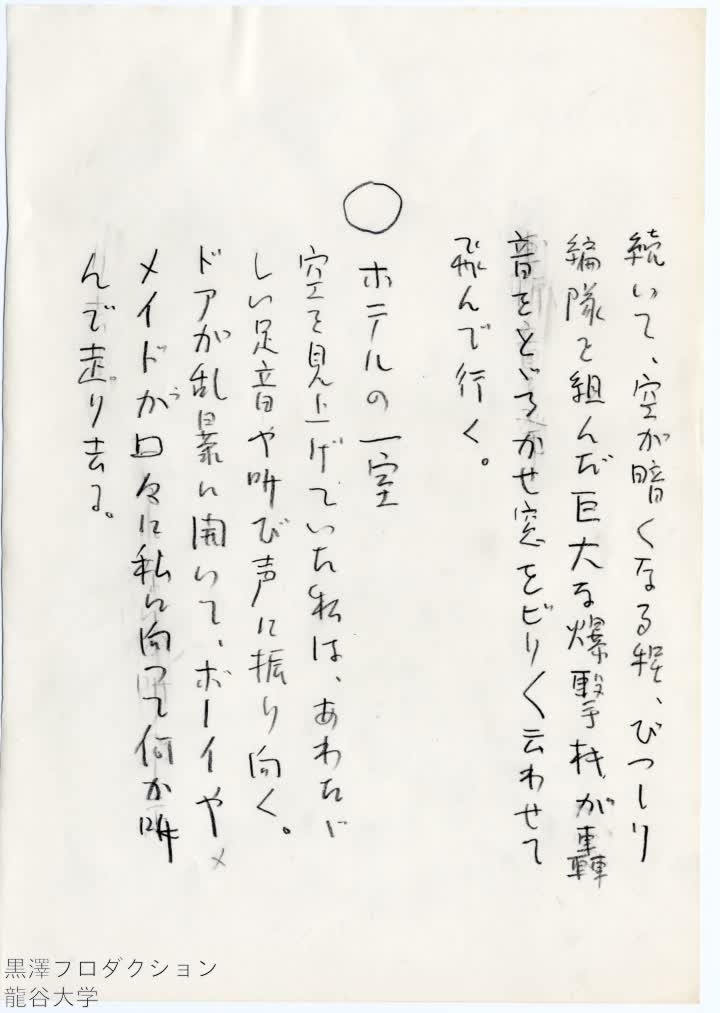 続いて、空が暗くなる程、びつしり
編隊を組んだ巨大な爆撃機が轟
音をとゞろかせ窓をビリ〱云わせて
飛んで行く。
○ ホテルの一室
空を見上げていた私は、あわたゞ
しい足音や叫び声に振り向く。
ドアが乱暴に開いて、ボーイや
メイドが口々に私に向つて何か叫
んで走り去る。
黒澤プロダクション
龍谷大学